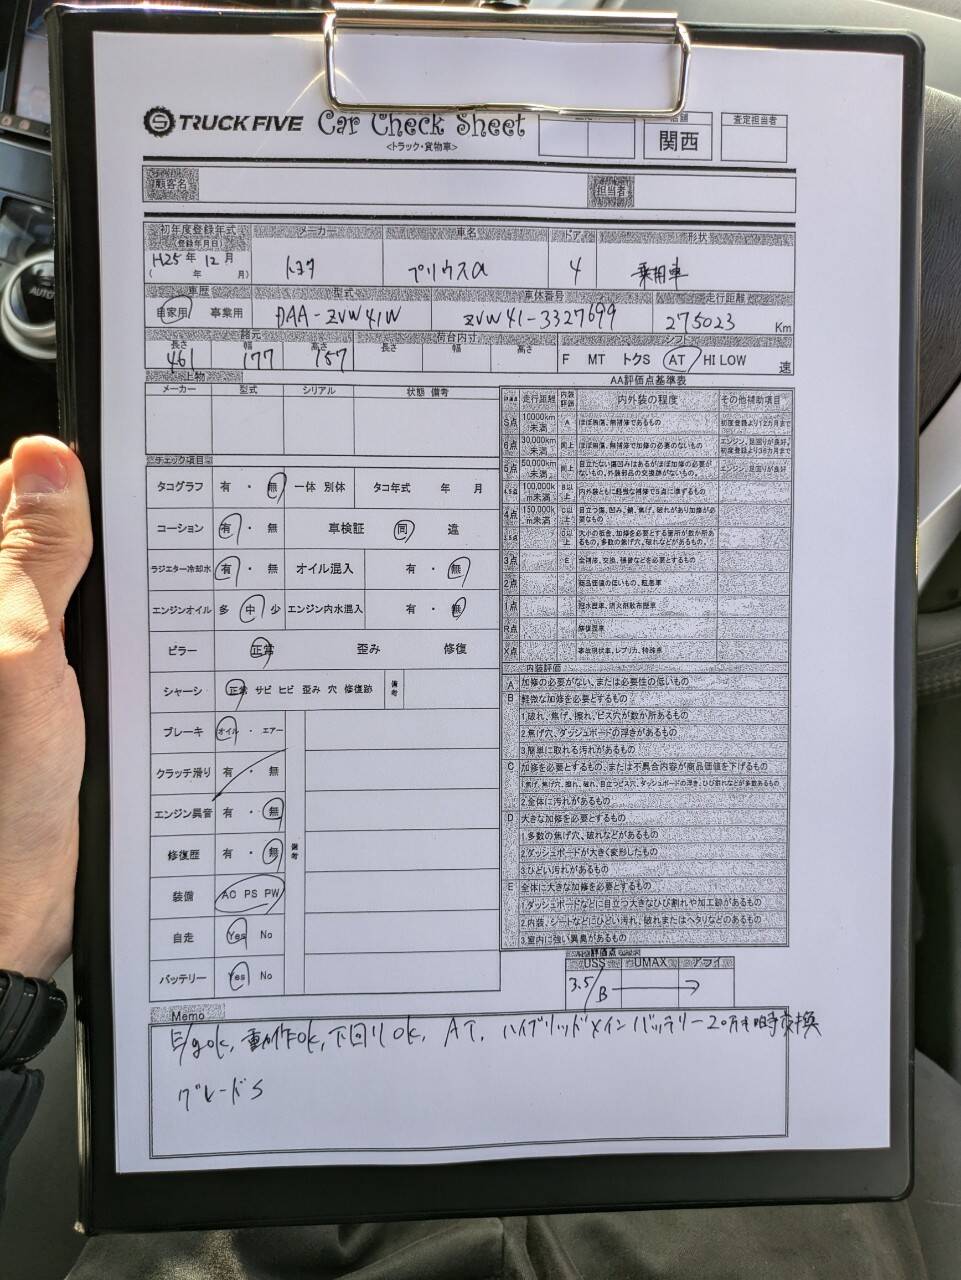 TRUCK FIVE Car Check Sheet
<トラック・貨物車>
関西
査定担当者
顧客名
担当者
初年度登録年式 メーカー 車名 ドア 形状
(登録年月日)
H25年 12月 トヨタ プリウスα 4 乗用車
( 年 月)
車歴 型式 車体番号 走行距離
自家用 事業用 DAA-ZVW41W ZVW41-3327699 275023 Km
諸元 荷台内寸 シフト
長さ 幅 高さ 長さ 幅 高さ
461 177 157 F MT トクS AT HI LOW 速
上物
メーカー 型式 シリアル 状態 備考
チェック項目
タコグラフ 有 ・ 無 一体 別体 タコ年式 年 月
コーション 有 ・ 無 車検証 同 違
ラジエター冷却水 有 ・ 無 オイル混入 有 ・ 無
エンジンオイル 多 中 少 エンジン内水混入 有 ・ 無
ピラー 正常 歪み 修復
シャーシ 正常 サビ ヒビ 歪み 穴 修復跡 備考
ブレーキ オイル ・ エアー
クラッチ滑り 有 ・ 無
エンジン異音 有 ・ 無
修復歴 有 ・ 無
備考
装備 AC PS PW
自走 Yes No
バッテリー Yes No
AA評価点基準表
走行距離 内外装の程度 その他補助項目
S点 10000km未満 A ほぼ無傷、無補修であるもの 初度登録より12カ月まで
6点 30,000km未満 同上 ほぼ無傷、無補修で加修の必要のないもの エンジン、足回りが良好。初度登録より36カ月まで
5点 50,000km未満 同上 目立たない傷凹みはあるがほぼ加修の必要がないもの。外装部品の交換跡がないもの。 エンジン、足回りが良好
4.5点 100,000km未満 B以上 内外装ともに軽微な補修で5点に準ずるもの
4点 150,000km未満 C以上 目立つ傷、凹み、錆、焦げ、破れがあり加修が必要なもの
3.5点 D以上 大小の板金、加修を必要とする箇所が数か所あるもの。多数の焦げ穴、破れなどがあるもの。
3点 E 全補修、交換、張替などを必要とするもの
2点 商品価値の低いもの、粗悪車
1点 冠水歴車、消火剤散布歴車
R点 修復歴車
X点 事故現状車、レプリカ、特殊車
内装評価
A 加修の必要がない、または必要性の低いもの
B 軽微な加修を必要とするもの
1.破れ、焦げ、擦れ、ビス穴が数か所あるもの
2.焦げ穴、ダッシュボードの浮きがあるもの
3.簡単に取れる汚れがあるもの
C 加修を必要とするもの、または不具合内容が商品価値を下げるもの
1.焦げ、焦げ穴、擦れ、破れ、目立つビス穴、ダッシュボードの浮き、ひび割れなどが多数あるもの
2.全体に汚れがあるもの
D 大きな加修を必要とするもの
1.多数の焦げ穴、破れなどがあるもの
2.ダッシュボードが大きく変形したもの
3.ひどい汚れがあるもの
E 全体に大きな加修を必要とするもの
1.ダッシュボードなどに目立つ大きなひび割れや加工跡があるもの
2.内装、シートなどにひどい汚れ、破れまたはヘタリなどのあるもの
3.室内に強い異臭があるもの
評価点
USS UMAX アライ
3.5/B →
Memo
E/g ok, 動作ok, 下回りok, AT, ハイブリッドメインバッテリー20万キロ時交換
グレードS